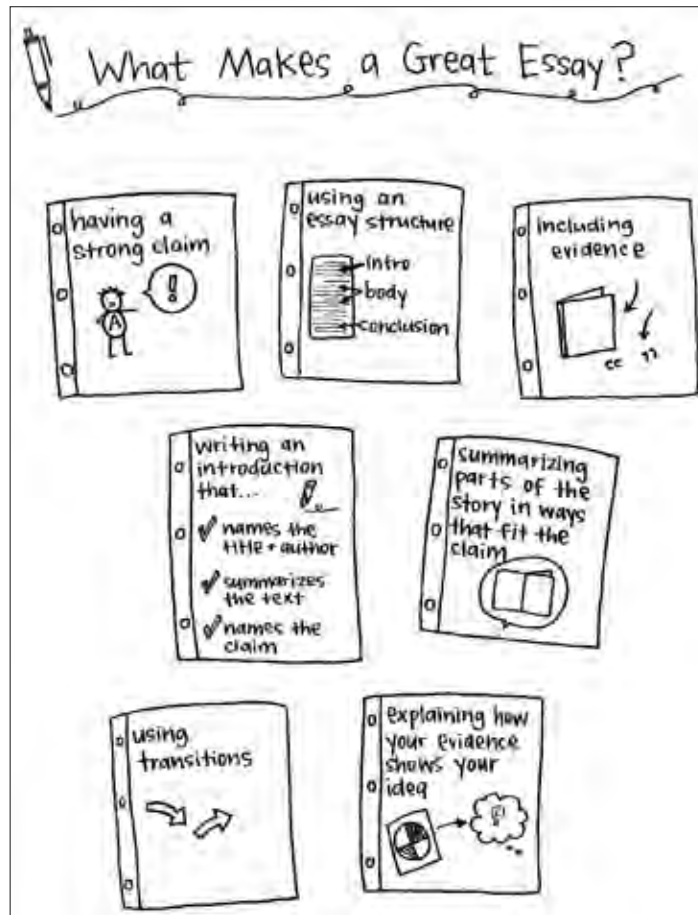 What Makes a Great Essay?
having a
strong claim
!
A
using an
essay structure
intro
body
conclusion
including
evidence
writing an
introduction
that...
names the
title + author
summarizes
the text
names the
claim
summarizing
parts of the
story in ways
that fit the
claim
using
transitions
explaining how
your evidence
shows your
idea